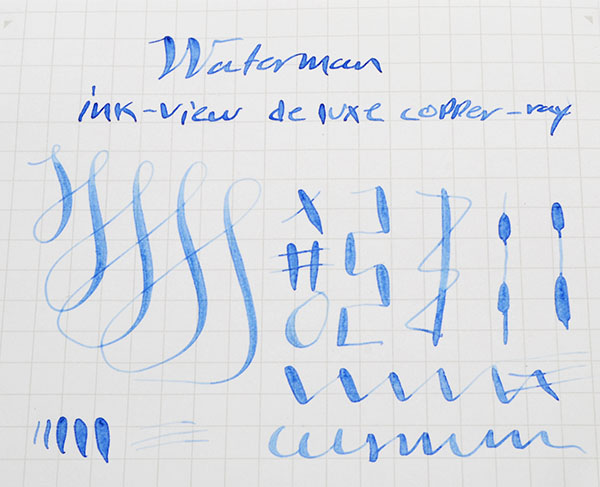 Waterman
ink-view de luxe copper-ray